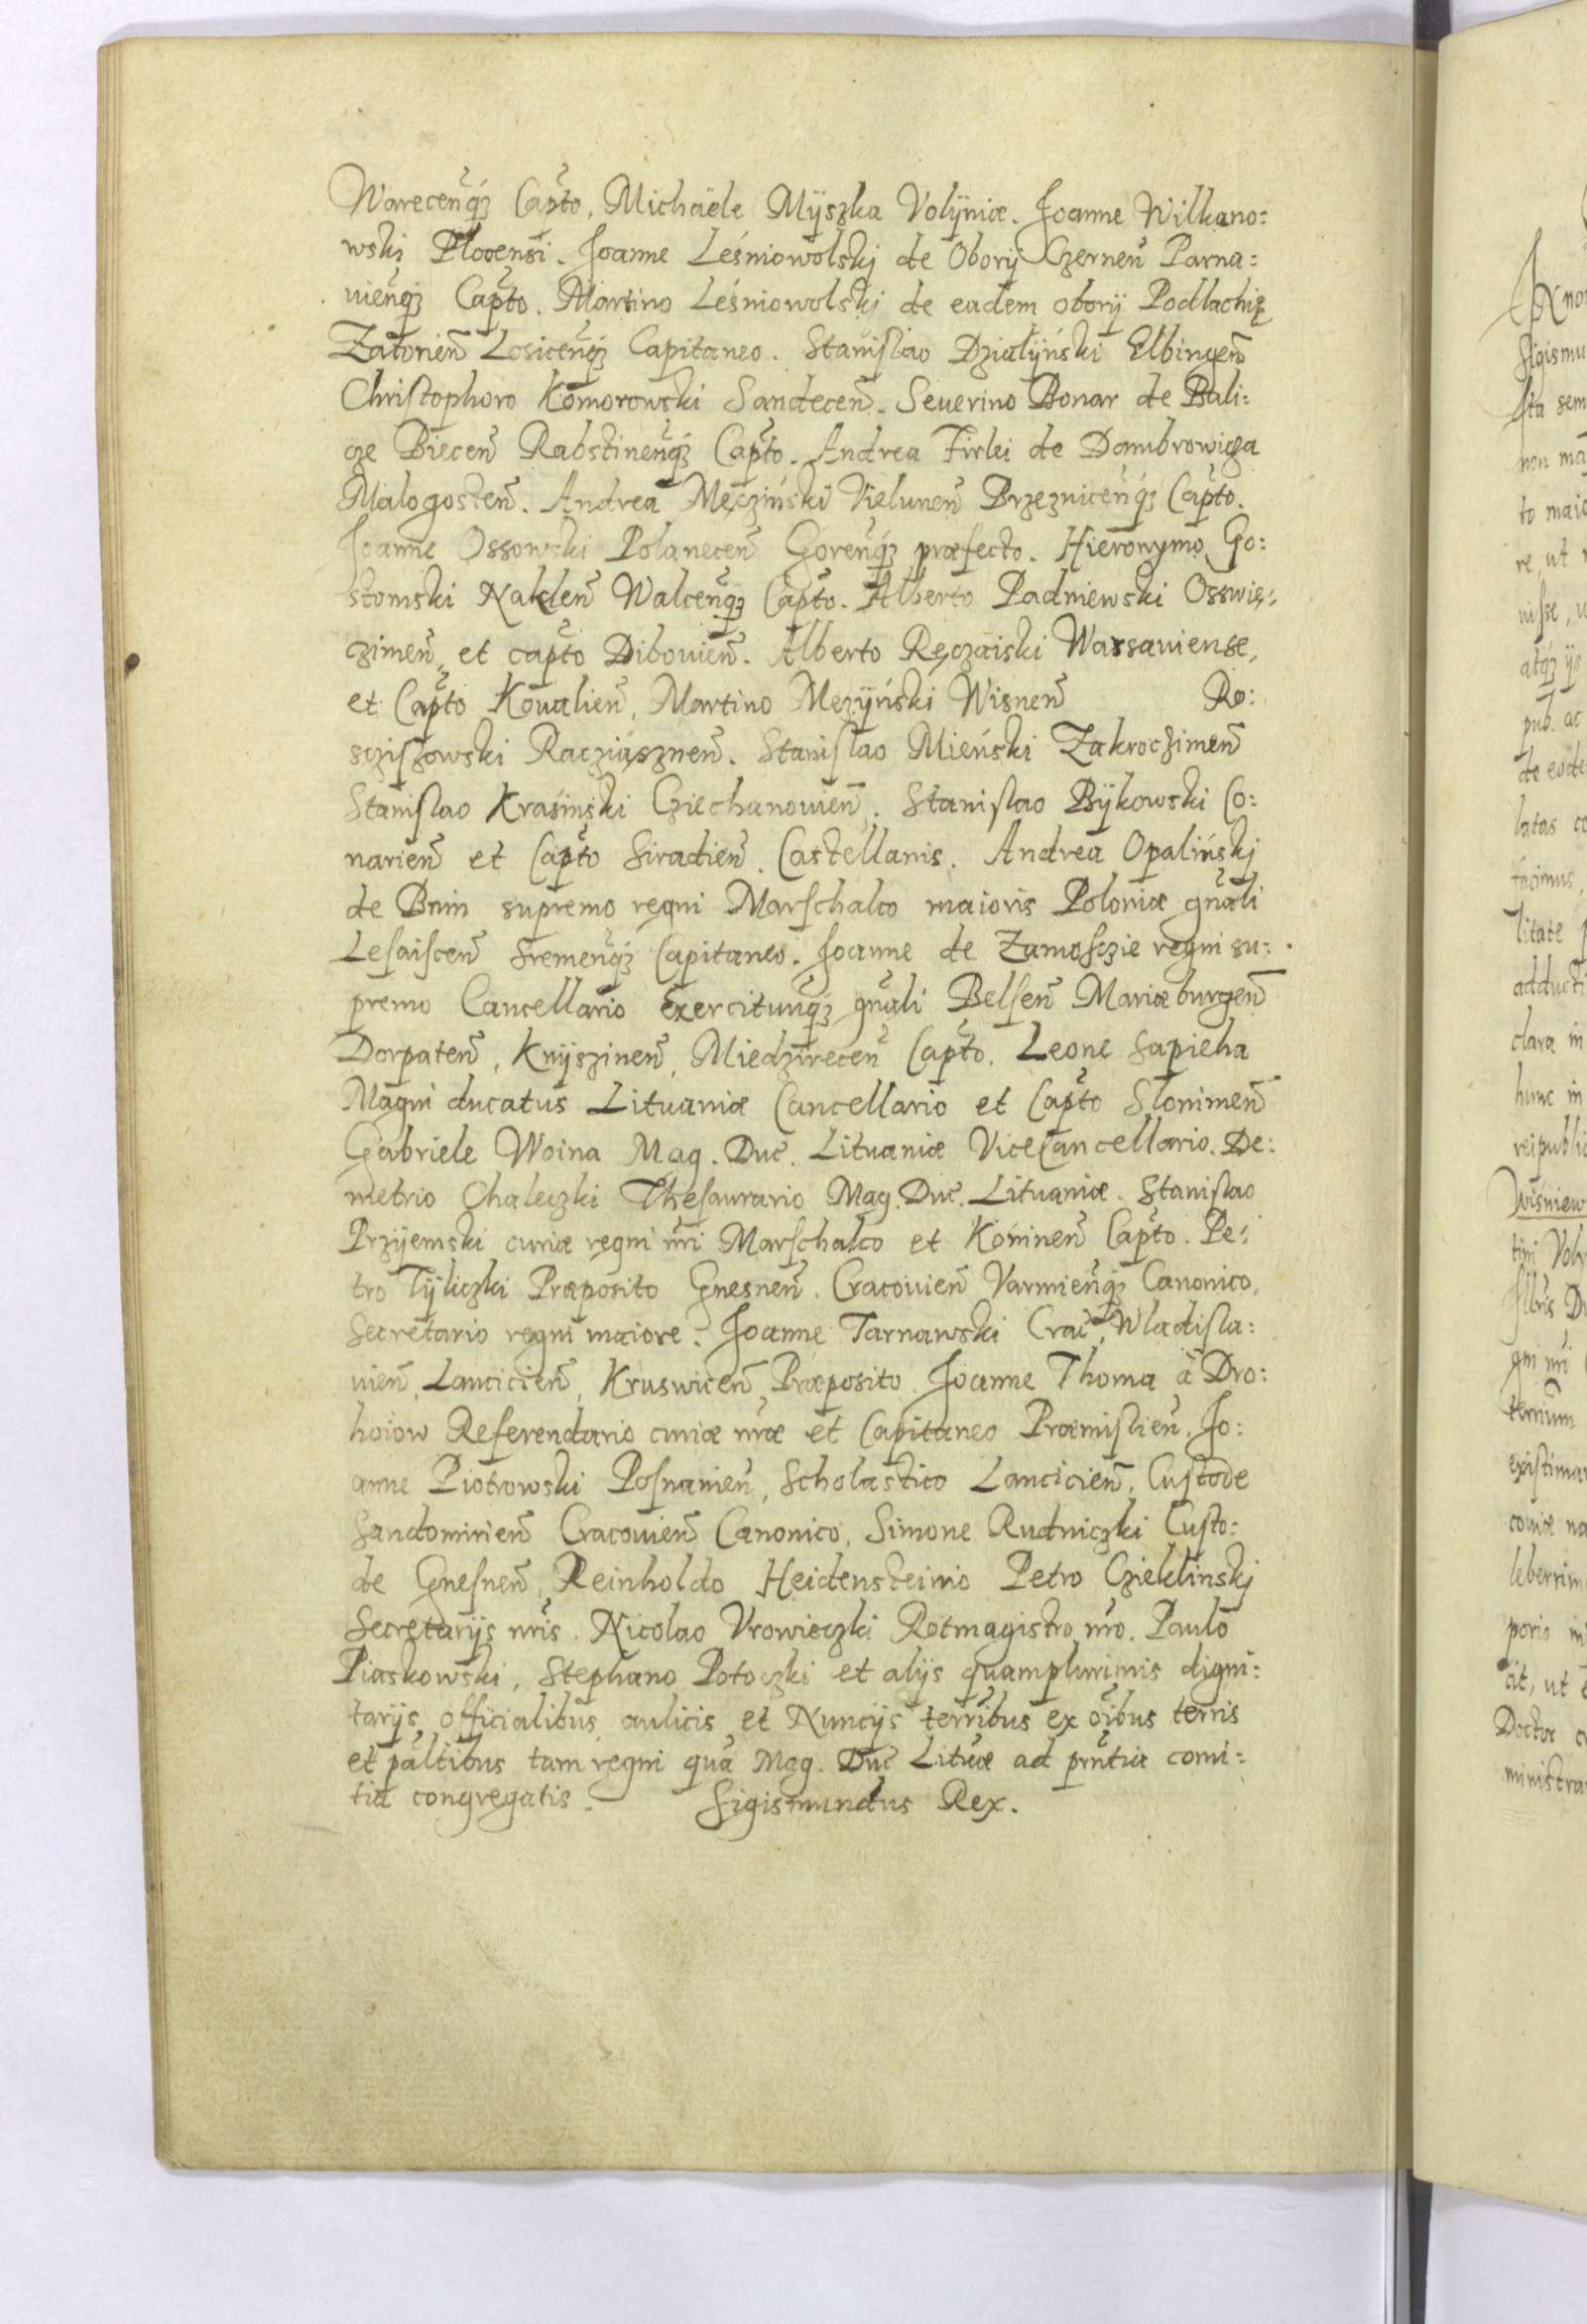 Warecen̄q́ꝫ Cap̄to, Michaële Mÿszka Volÿniæ. Joanne Wilkano:
wski Plocensi. Joanne Leśniowolskj de Oborÿ Czerneñ Parna:
uien̄q́ꝫ Cap̄to. Martino Leśniowolskj de eadem oborÿ Podlachię
Zatorień Losicen̄q́ꝫ Capitaneo. Stanislao Dzialÿński Elbingeñ
Christophoro Komorowski Sandeceñ. Seuerino Bonar de Bali:
cze Bieceñ Rabstinen̄q́ꝫ Cap̄to. Andrea Firlei de Dambrowicza
Malogosteñ. Andrea Męcziński Vieluneñ Brzeznicen̄q́ꝫ Cap̄to.
Joanne Ossowski Polaneceñ Goren̄q́ꝫ præfecto. Hieronymo Go:
stomski Nakleñ Walcen̄q́ꝫ Cap̄to. Alberto Padniewski Osswię:
czimeñ, et cap̄to Dibouieñ. Alberto Ręczaiski Warsauiense,
et Cap̄to Koualieñ, Martino Mezÿński Wisneñ Ro:
sciszowski Racziąszneñ. Stanislao Mieński Zakroczimeñ
Stanislao Krasiński Cziechanouieñ. Stanislao Bÿkowski Co:
narieñ et Cap̄to Siradieñ. Castellanis. Andrea Opalińskj
de Bnin supremo regni Marschalco maioris Poloniæ gn̄ali
Lesaisceñ Sremen̄q́ꝫ Capitaneo. Joanne de Zamosczie regni su:
premo Cancellario Exercituun̄q́ꝫ gn̄ali Belseñ Mariæburgeñ
Dorpateñ, Knÿszineñ, Miedzireceñ Cap̄to. Leone Sapieha
Magni ducatus Lituaniæ Cancellario et Cap̄to Slonimeñ
Gabriele Woina Mag. Duc. Lituaniæ ViceCancellario. De:
metrio Chaleczki Thesaurario Mag. Duc. Lituaniæ. Stanislao
Przÿemski curiæ regni nr̄i Marschalco et Konineñ Cap̄to. Pe:
tro Tÿliczki Præposito Gnesneñ. Cracouieñ Varmien̄q́ꝫ Canonico,
Secretario regni maiore. Joanne Tarnawski Crac̄, Wladisla:
uieñ, Lancicieñ, Kruswiceñ Præposito. Joanne Thoma à Dro:
hoiow Referendario curiæ nr̄æ et Capitaneo Præmislieñ. Jo:
anne Piotrowski Posnanieñ, Scholastico Lancicieñ, Custode
Sandomirieñ Cracouieñ Canonico, Simone Rudniczki Custo:
de Gnesneñ, Reinholdo Heidensteinio Petro Czieklinskj
Secretarÿs nr̄is. Nicolao Vrowieczki Rotmagistro nr̄o. Paulo
Piaskowski, Stephano Potoczki et alÿs quamplurimis digni:
tarÿs officialibus aulicis et Nuncÿs terr̄ibus ex oībus terris
et pāltibus tam regni quā Mag. Duc̄ Litūæ ad prn̄tia comi:
tia congregatis. Sigismundus Rex.